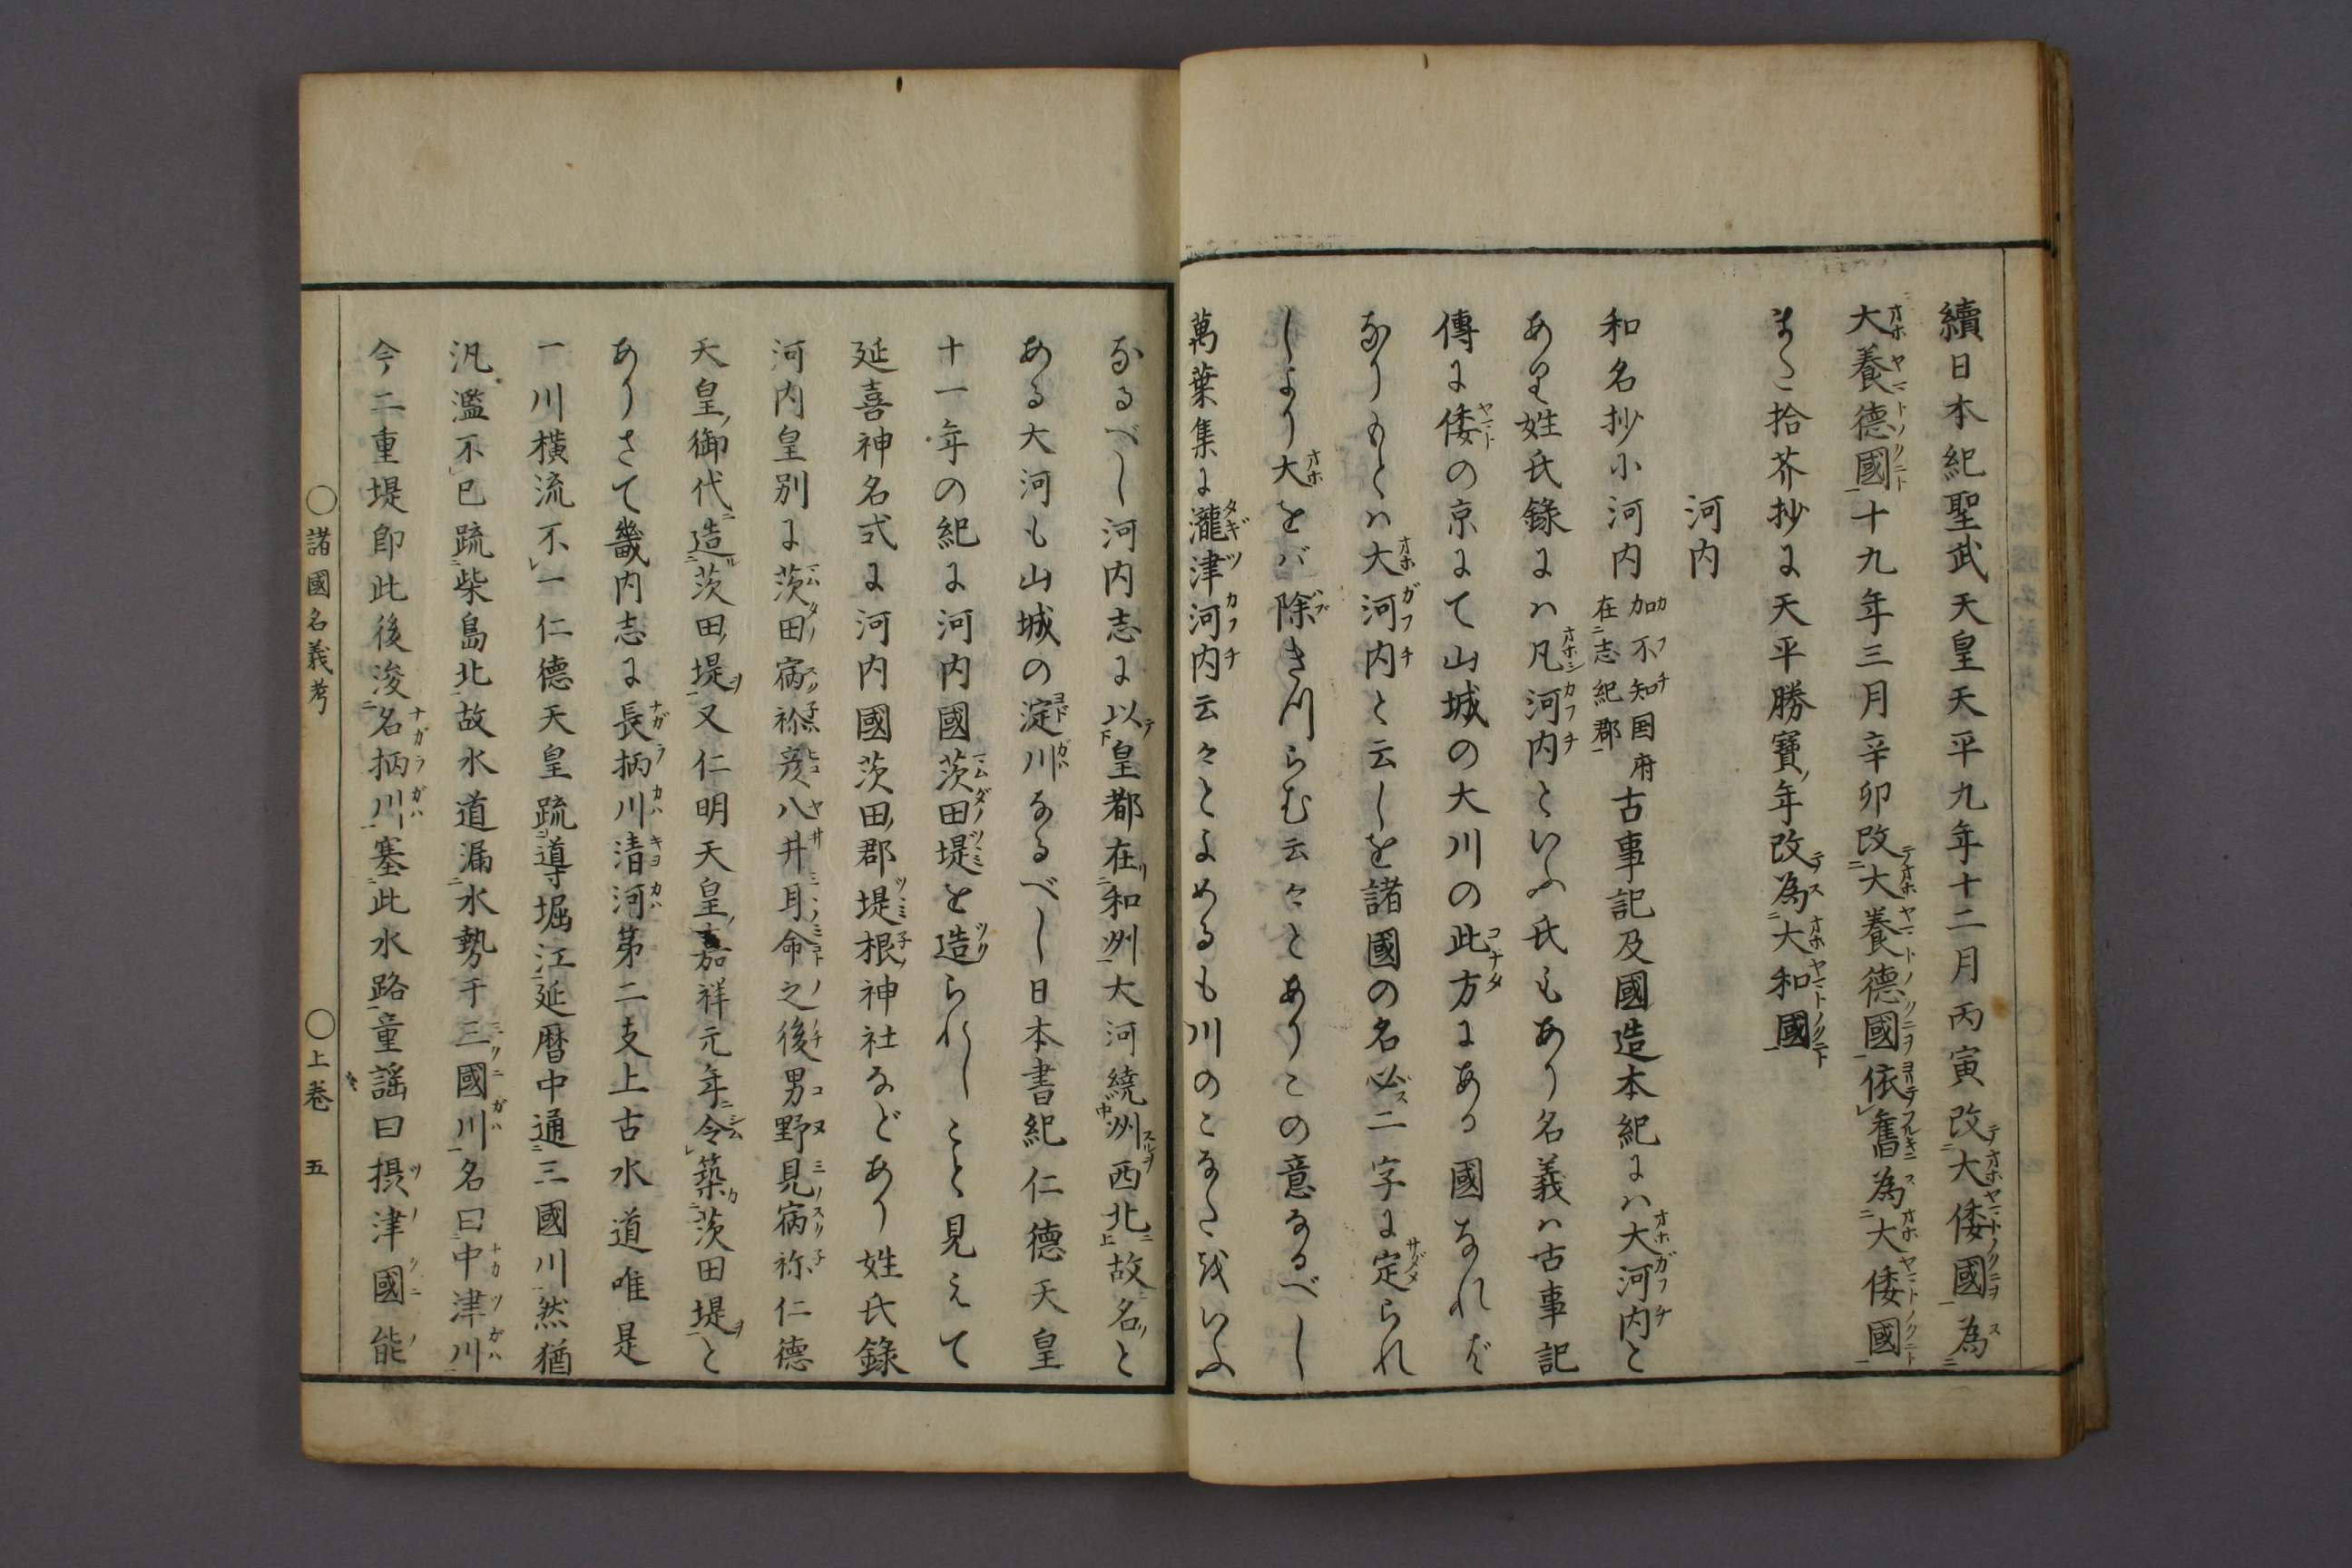 續日本紀聖武天皇天平九年十二月丙寅改大倭國為
大養德國十九年三月辛卯改大養德國依舊為大倭國
また拾芥抄に天平勝寶年改為大和國
河内
和名抄小河内加不知国府在志紀郡古事記及國造本紀にハ大河内と
あり姓氏錄にハ凡河内といふ氏もあり名義ハ古事記
傳に倭の京にて山城の大川の此方にある國なれば
なりもとハ大河内と云しを諸國の名必二字に定られ
しより大をバ除き川らむ云々とありこの意なるべし
萬葉集に瀧津河内云々とよめるも川のこなたをいふ
なるべし河内志に以皇都在和州大河繞州西北故名と
ある大河も山城の淀川なるべし日本書紀仁德天皇
十一年の紀に河内國茨田堤を造られしこと見えて
延喜神名式に河内國茨田郡堤根神社などあり姓氏錄
河内皇別に茨田宿祢彦八井耳命之後男野見宿祢仁德
天皇御代造茨田堤又仁明天皇嘉祥元年令築茨田堤と
ありさて畿内志に長柄川清河第二支上古水道唯是
一川橫流不一仁德天皇疏導堀江延暦中通三國川然猶
汎濫不已疏柴島北故水道漏水勢于三國川名曰中津川
今二重堤即此後浚名柄川塞此水路童謠曰摂津國能
○諸國名義考　○上巻　五